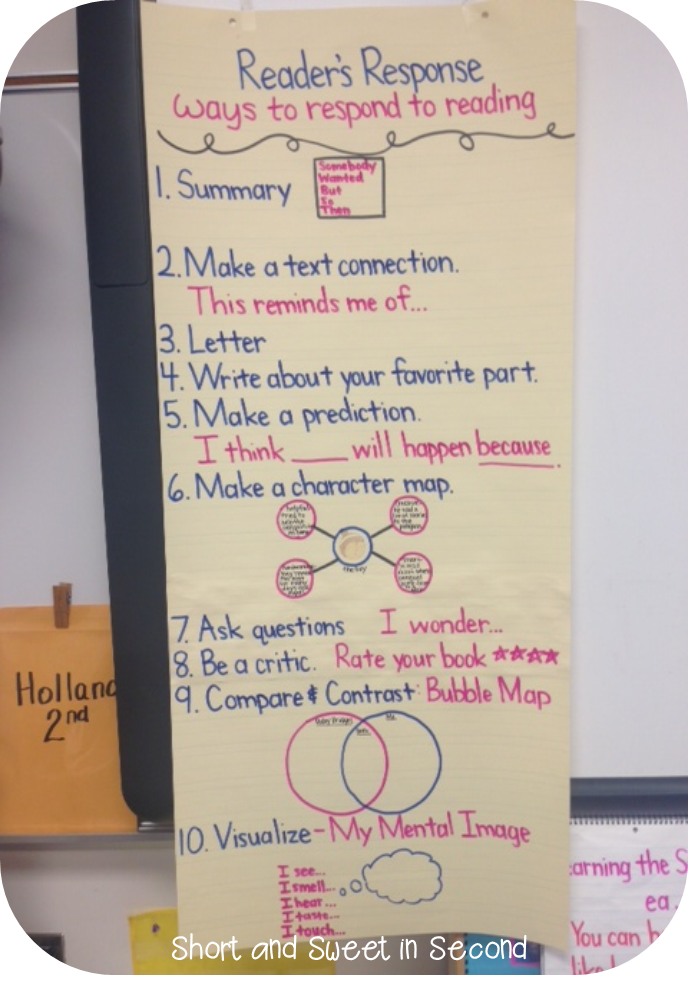 Reader's Response
Ways to respond to reading
1. Summary
Somebody
Wanted
But
So
Then
2. Make a text connection.
This reminds me of...
3. Letter
4. Write about your favorite part.
5. Make a prediction.
I think ____ will happen because.
6. Make a character map.
the boy
7. Ask questions I wonder...
8. Be a critic. Rate your book ☆☆☆☆
9. Compare & Contrast: Bubble Map
Ruby Bridges
Me
Both
10. Visualize - My Mental Image
I see...
I smell...
I hear...
I taste...
I touch...
Holland
2nd
arning the S
ea.
You can b
Short and Sweet in Second